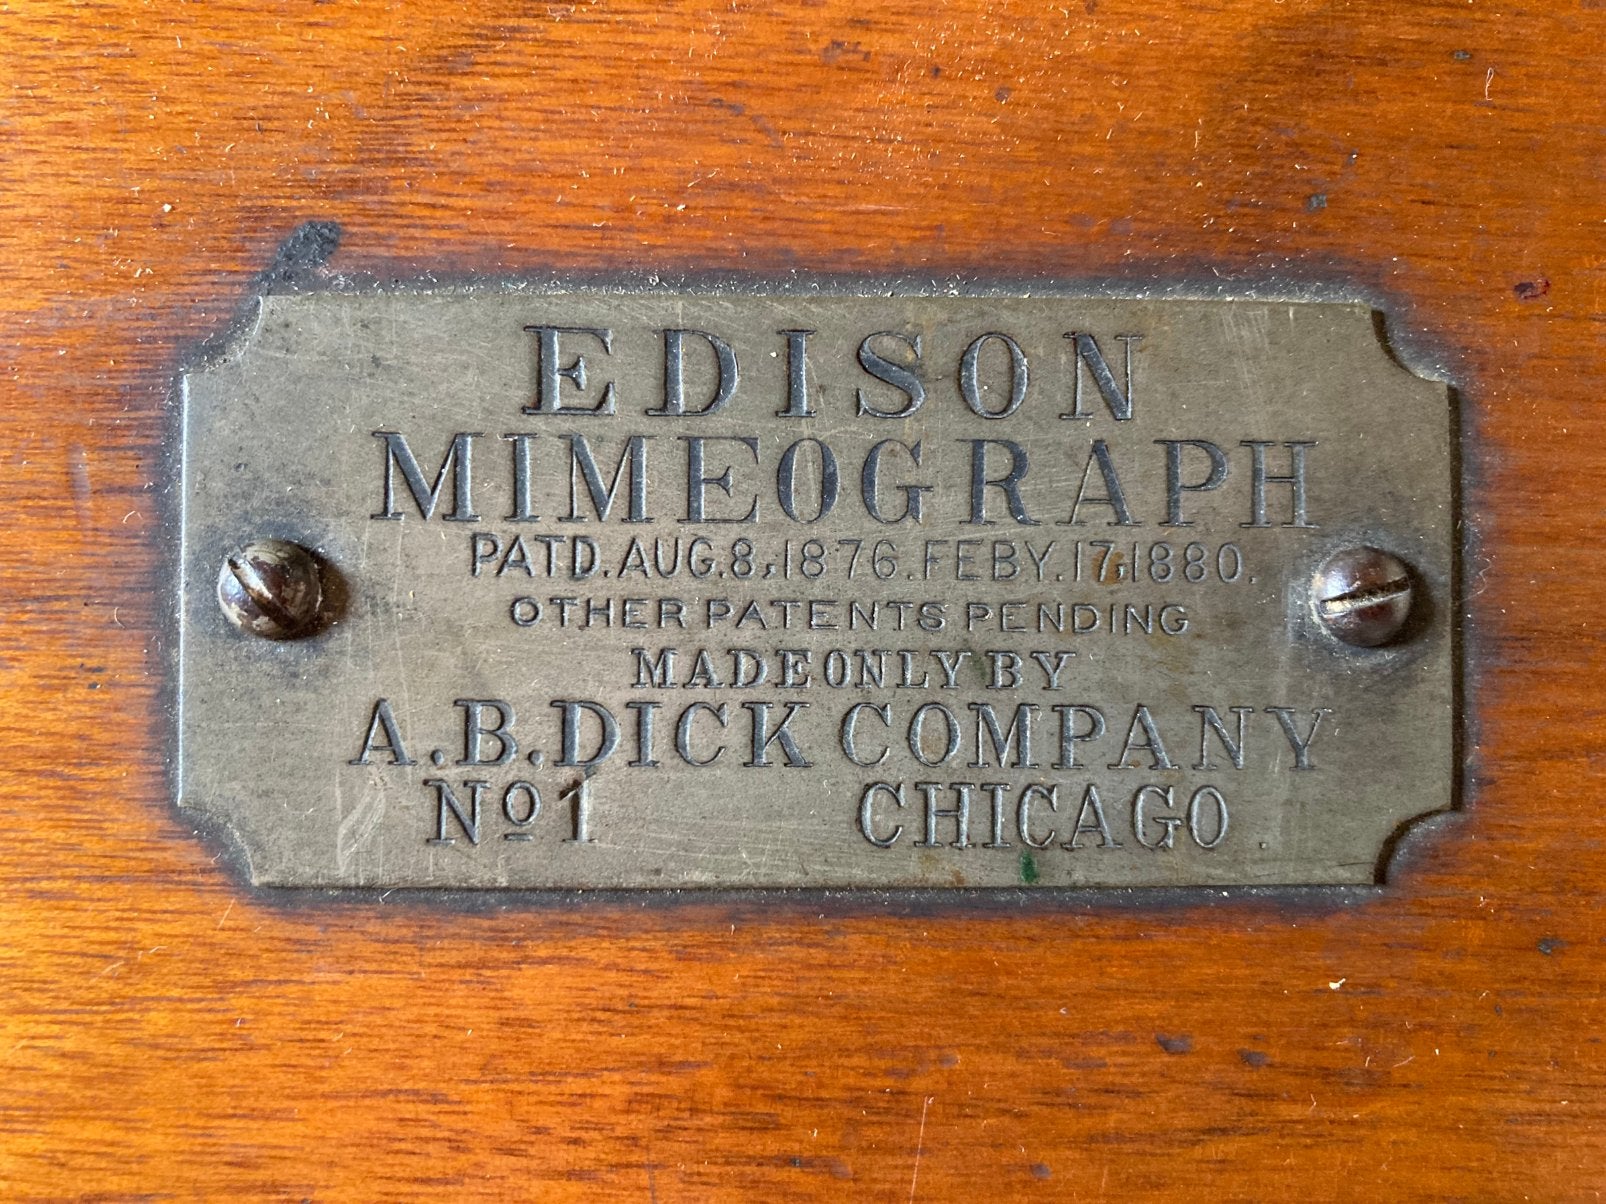 EDISON
MIMEOGRAPH
PATD. AUG. 8, 1876. FEBY. 17, 1880.
OTHER PATENTS PENDING
MADE ONLY BY
A. B. DICK COMPANY
No 1 CHICAGO.